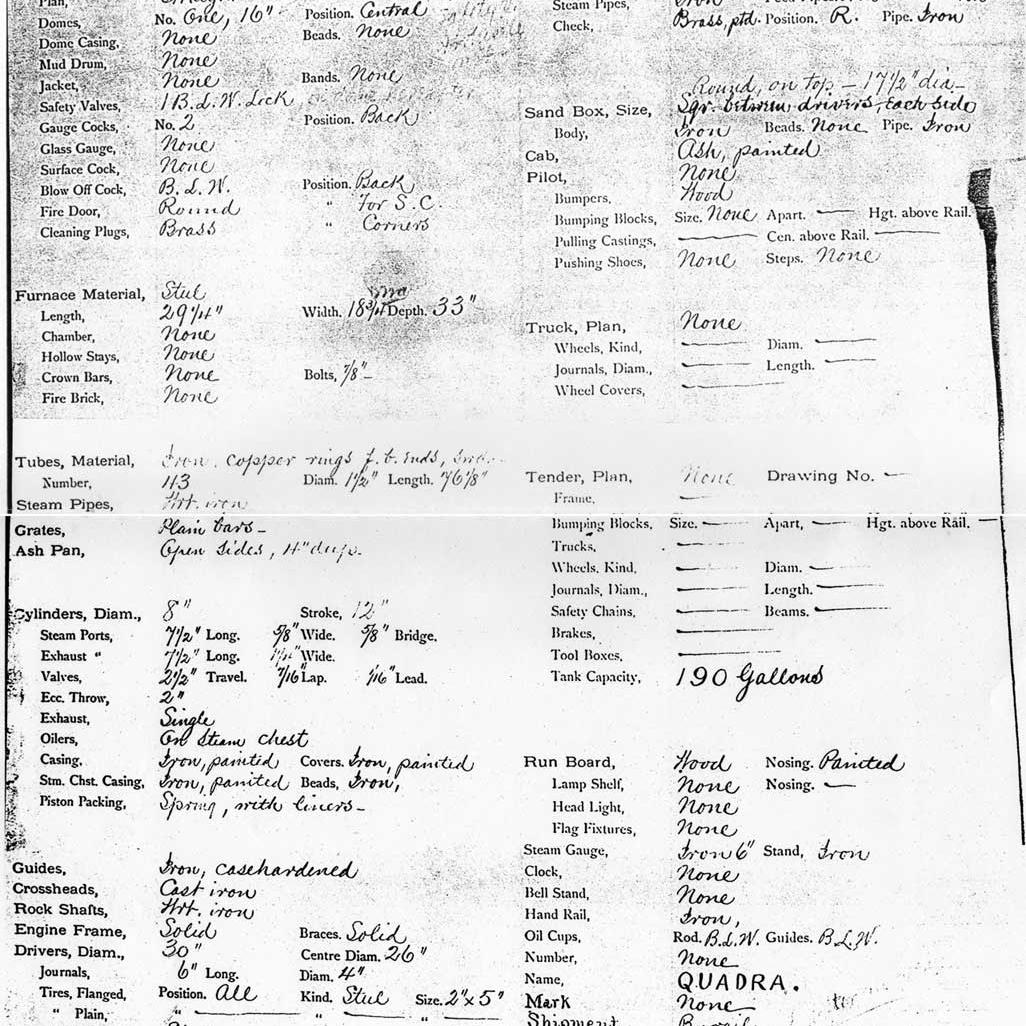 Plan,
Domes, No. One, 16" Position. Central
Dome Casing, None Beads. None
Mud Drum, None
Jacket, None Bands. None
Safety Valves, 1 B.L.W. Lock
Gauge Cocks, No. 2 Position. Back
Glass Gauge, None
Surface Cock, None
Blow Off Cock, B.L.W. Position. Back
Fire Door, Round " for S.C.
Cleaning Plugs, Brass " Corners
Furnace Material, Steel
Length, 29 1/4" Width. 18 3/4 Depth. 33"
Chamber, None
Hollow Stays, None
Crown Bars, None Bolts, 7/8"
Fire Brick, None
Tubes, Material, Iron. Copper rings f.b. Ends,
Number, 43 Diam. 1 1/2" Length. 76 1/8"
Steam Pipes, Wrt. iron
Grates, Plain bars -
Ash Pan, Open sides, 4" deep.
Cylinders, Diam., 8" Stroke, 12"
Steam Ports, 7 1/2" Long. 5/8" Wide. 5/8" Bridge.
Exhaust " 7 1/2" Long. 1 1/4" Wide.
Valves, 2 1/2" Travel. 7/16" Lap. 1/16" Lead.
Ecc. Throw, 2"
Exhaust, Single
Oilers, On steam chest
Casing, Iron, painted Covers. Iron, painted
Stm. Chst. Casing, Iron, painted Beads, Iron,
Piston Packing, Spring, with liners -
Guides, Iron, casehardened
Crossheads, Cast iron
Rock Shafts, Wrt. iron
Engine Frame, Solid Braces. Solid
Drivers, Diam., 30" Centre Diam. 26"
Journals, 6" Long. Diam. 4"
Tires, Flanged, Position. All Kind. Steel Size. 2" x 5"
" Plain, " " "
Steam Pipes, Iron
Check, Brass, ptd. Position. R. Pipe. Iron
Round, on top - 17 1/2" dia -
Sand Box, Size, Sqr. between drivers, each side
Body, Iron Beads. None Pipe. Iron
Cab, Ash, painted
Pilot, None
Bumpers, Wood
Bumping Blocks, Size. None Apart. — Hgt. above Rail.
Pulling Castings, — Cen. above Rail. —
Pushing Shoes, None Steps. None
Truck, Plan, None
Wheels, Kind, — Diam. —
Journals, Diam., — Length. —
Wheel Covers, —
Tender, Plan, None Drawing No. —
Frame, —
Bumping Blocks, Size. — Apart, — Hgt. above Rail. —
Trucks, —
Wheels, Kind, — Diam. —
Journals, Diam., — Length. —
Safety Chains, — Beams. —
Brakes, —
Tool Boxes, —
Tank Capacity, 190 Gallons
Run Board, Wood Nosing. Painted
Lamp Shelf, None Nosing. —
Head Light, None
Flag Fixtures, None
Steam Gauge, Iron 6" Stand, Iron
Clock, None
Bell Stand, None
Hand Rail, Iron,
Oil Cups, Rod. B.L.W. Guides. B.L.W.
Number, None
Name, QUADRA.
Mark None
Shipment Brazil